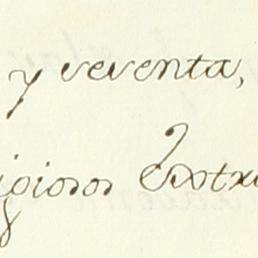 y sesenta,
igiosos Extra